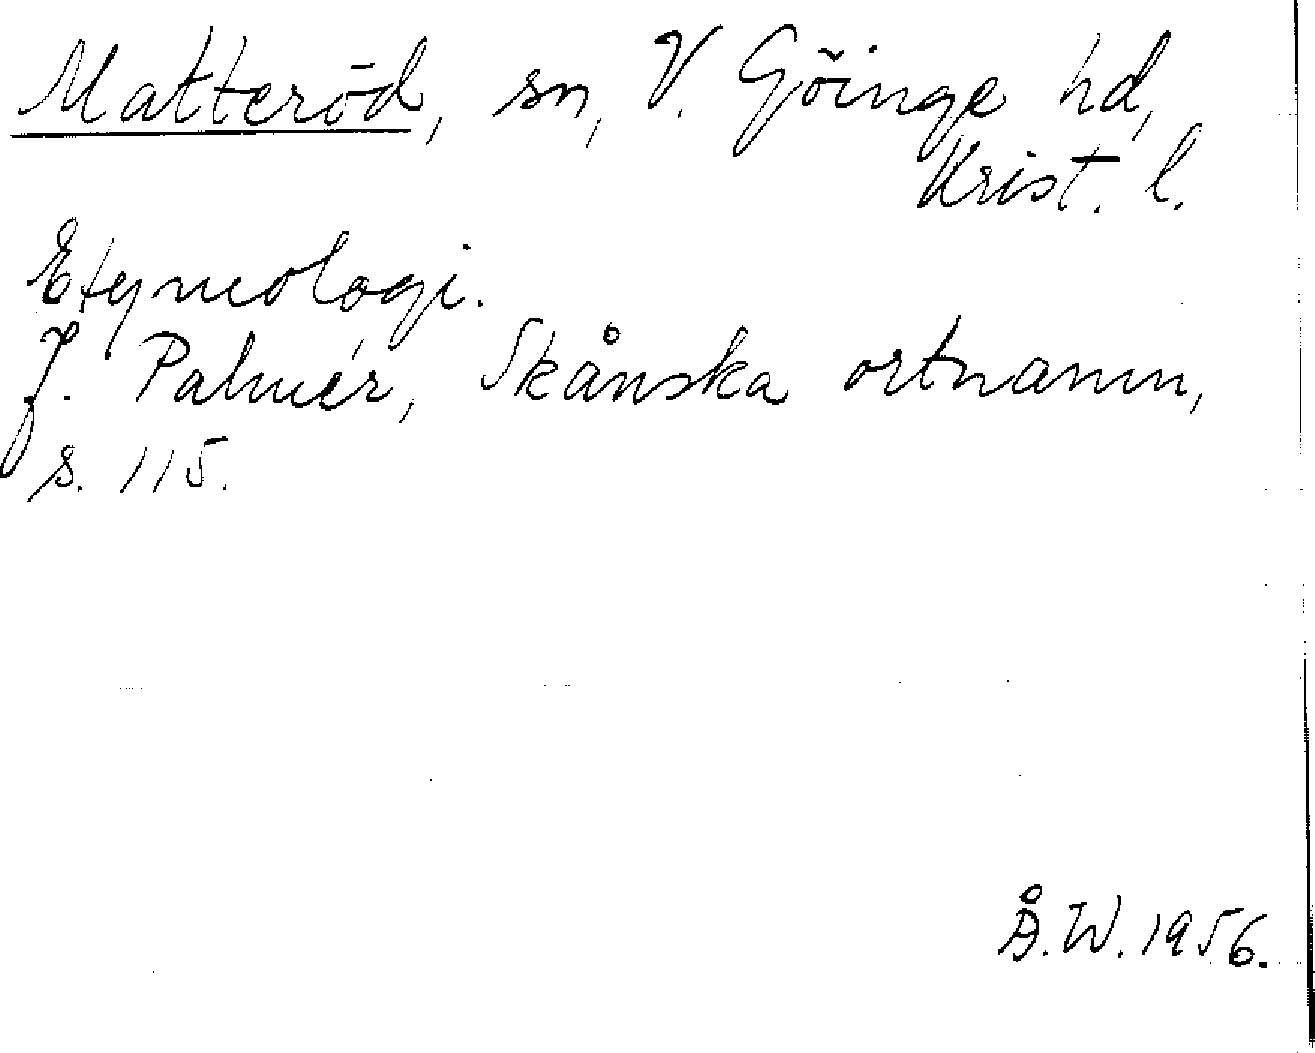 Matteröd, sn, V. Göinge hd,
Krist. l.
Etymologi.
J. Palmér, Skånska ortnamn,
s. 115.
Å.W. 1956.